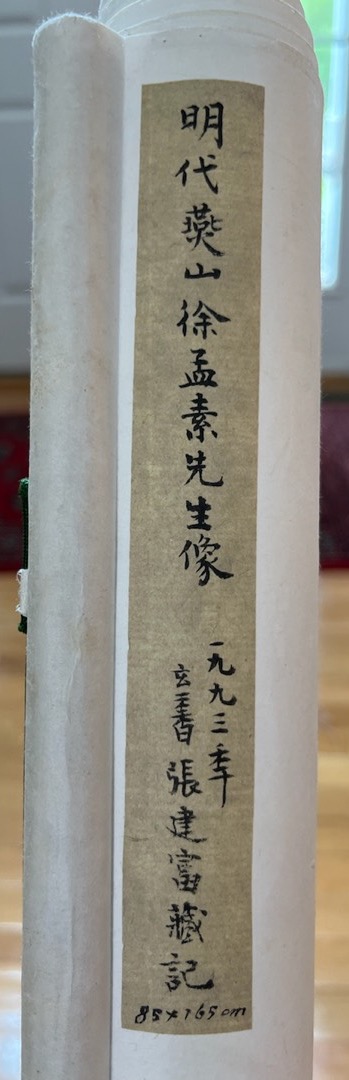 明代燕山徐孟素先生像
一九九三秊
玄 張建富藏記
85x165cm